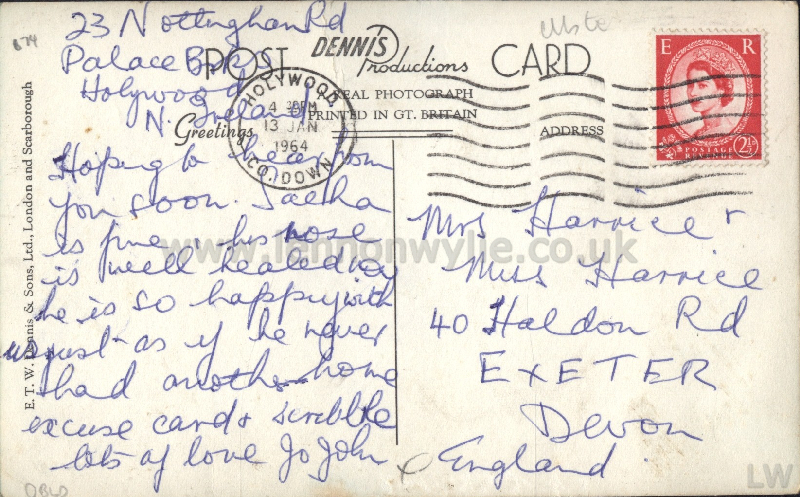 23 Nottingham Rd
Palace Bks
Holywood
N. Ireland
874
POST CARD
DENNIS
Productions
REAL PHOTOGRAPH
PRINTED IN GT. BRITAIN
Greetings
ADDRESS
E. T. W. Dennis & Sons, Ltd., London and Scarborough
HOLYWOOD
4 30PM
13 JAN
1964
CO. DOWN
E R
POSTAGE
REVENUE
2½
Hoping to hear from
you soon.
is fine & his nose
is well healed now
he is so happy with
us just as if he never
had another home
excuse card & scribble
lots of love Jo John
Mrs Harrice &
Miss Harrice
40 Haldon Rd
EXETER
Devon
England.
www.lennonwylie.co.uk
LW